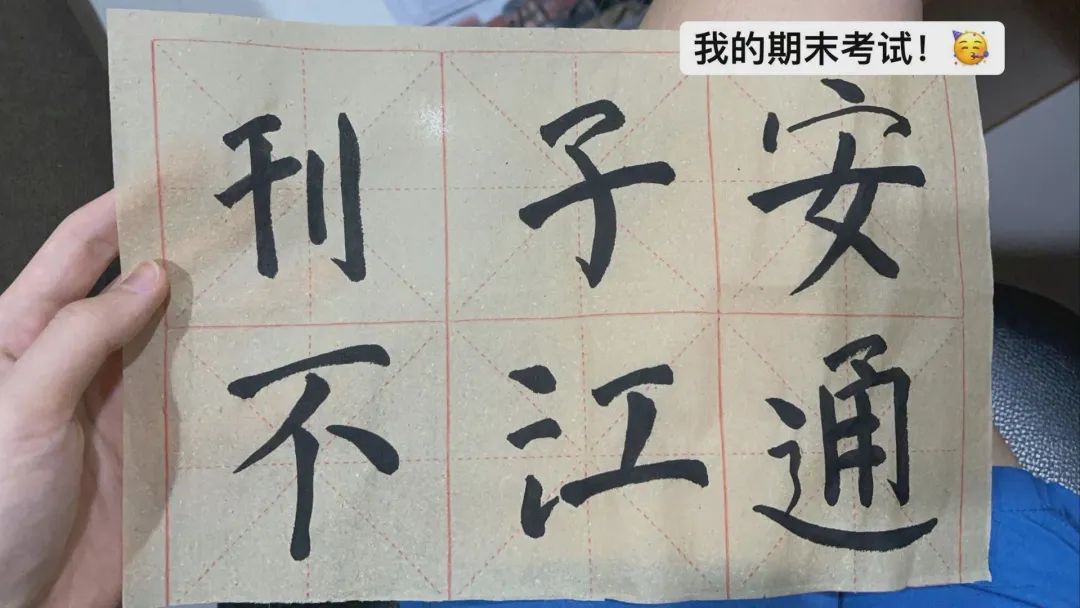 我的期末考试！🥳
刊子安
不江通